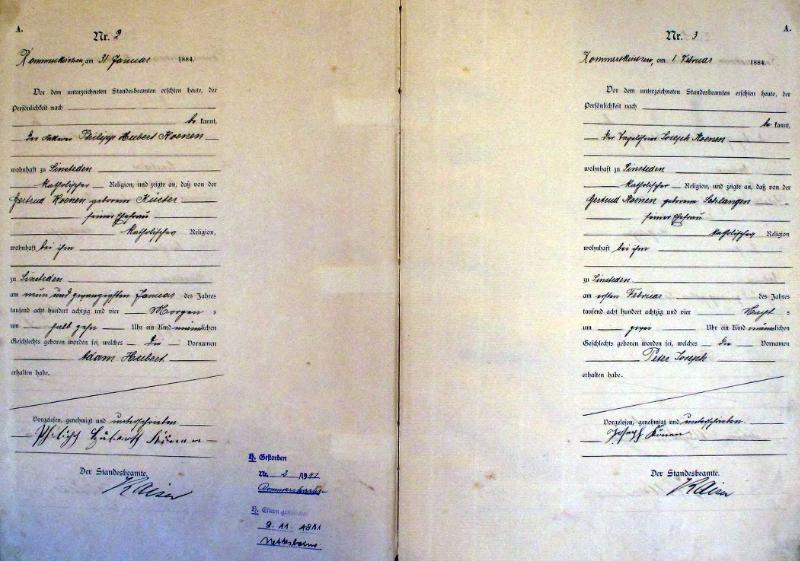 A.
Nr. 2
Rommerskirchen, am 31 Januar 1884.
Vor dem unterzeichneten Standesbeamten erschien heute, der
Persönlichkeit nach
be kannt,
der Philipp Hubert Koenen
wohnhaft zu Sinsteden
katholischer Religion, und zeigte an, daß von der
Gertrud Koenen geborenen
seiner Ehefrau
katholischer Religion,
wohnhaft bei ihm
zu Sinsteden
am neun und zwanzigsten Januar des Jahres
tausend acht hundert achtzig und vier Morgens
um halb zehn Uhr ein Kind männlichen
Geschlechts geboren worden sei, welches die Vornamen
Adam Hubert
erhalten habe.
Vorgelesen, genehmigt und unterschrieben
Philipp Hubert Könen
Der Standesbeamte.
Kaiser
H. Gestorben
Nr. 2
9. 11. 1911
A.
Nr. 3
Rommerskirchen, am 1 Februar 1884.
Vor dem unterzeichneten Standesbeamten erschien heute, der
Persönlichkeit nach
be kannt,
der Tagelöhner Joseph Koenen
wohnhaft zu Sinsteden
katholischer Religion, und zeigte an, daß von der
Gertrud Koenen geborenen Schlangen
seiner Ehefrau
katholischer Religion
wohnhaft bei ihm
zu Sinsteden
am ersten Februar des Jahres
tausend acht hundert achtzig und vier
um Uhr ein Kind männlichen
Geschlechts geboren worden sei, welches die Vornamen
Peter Joseph
erhalten habe.
Vorgelesen, genehmigt und unterschrieben
Joseph Könen
Der Standesbeamte.
Kaiser